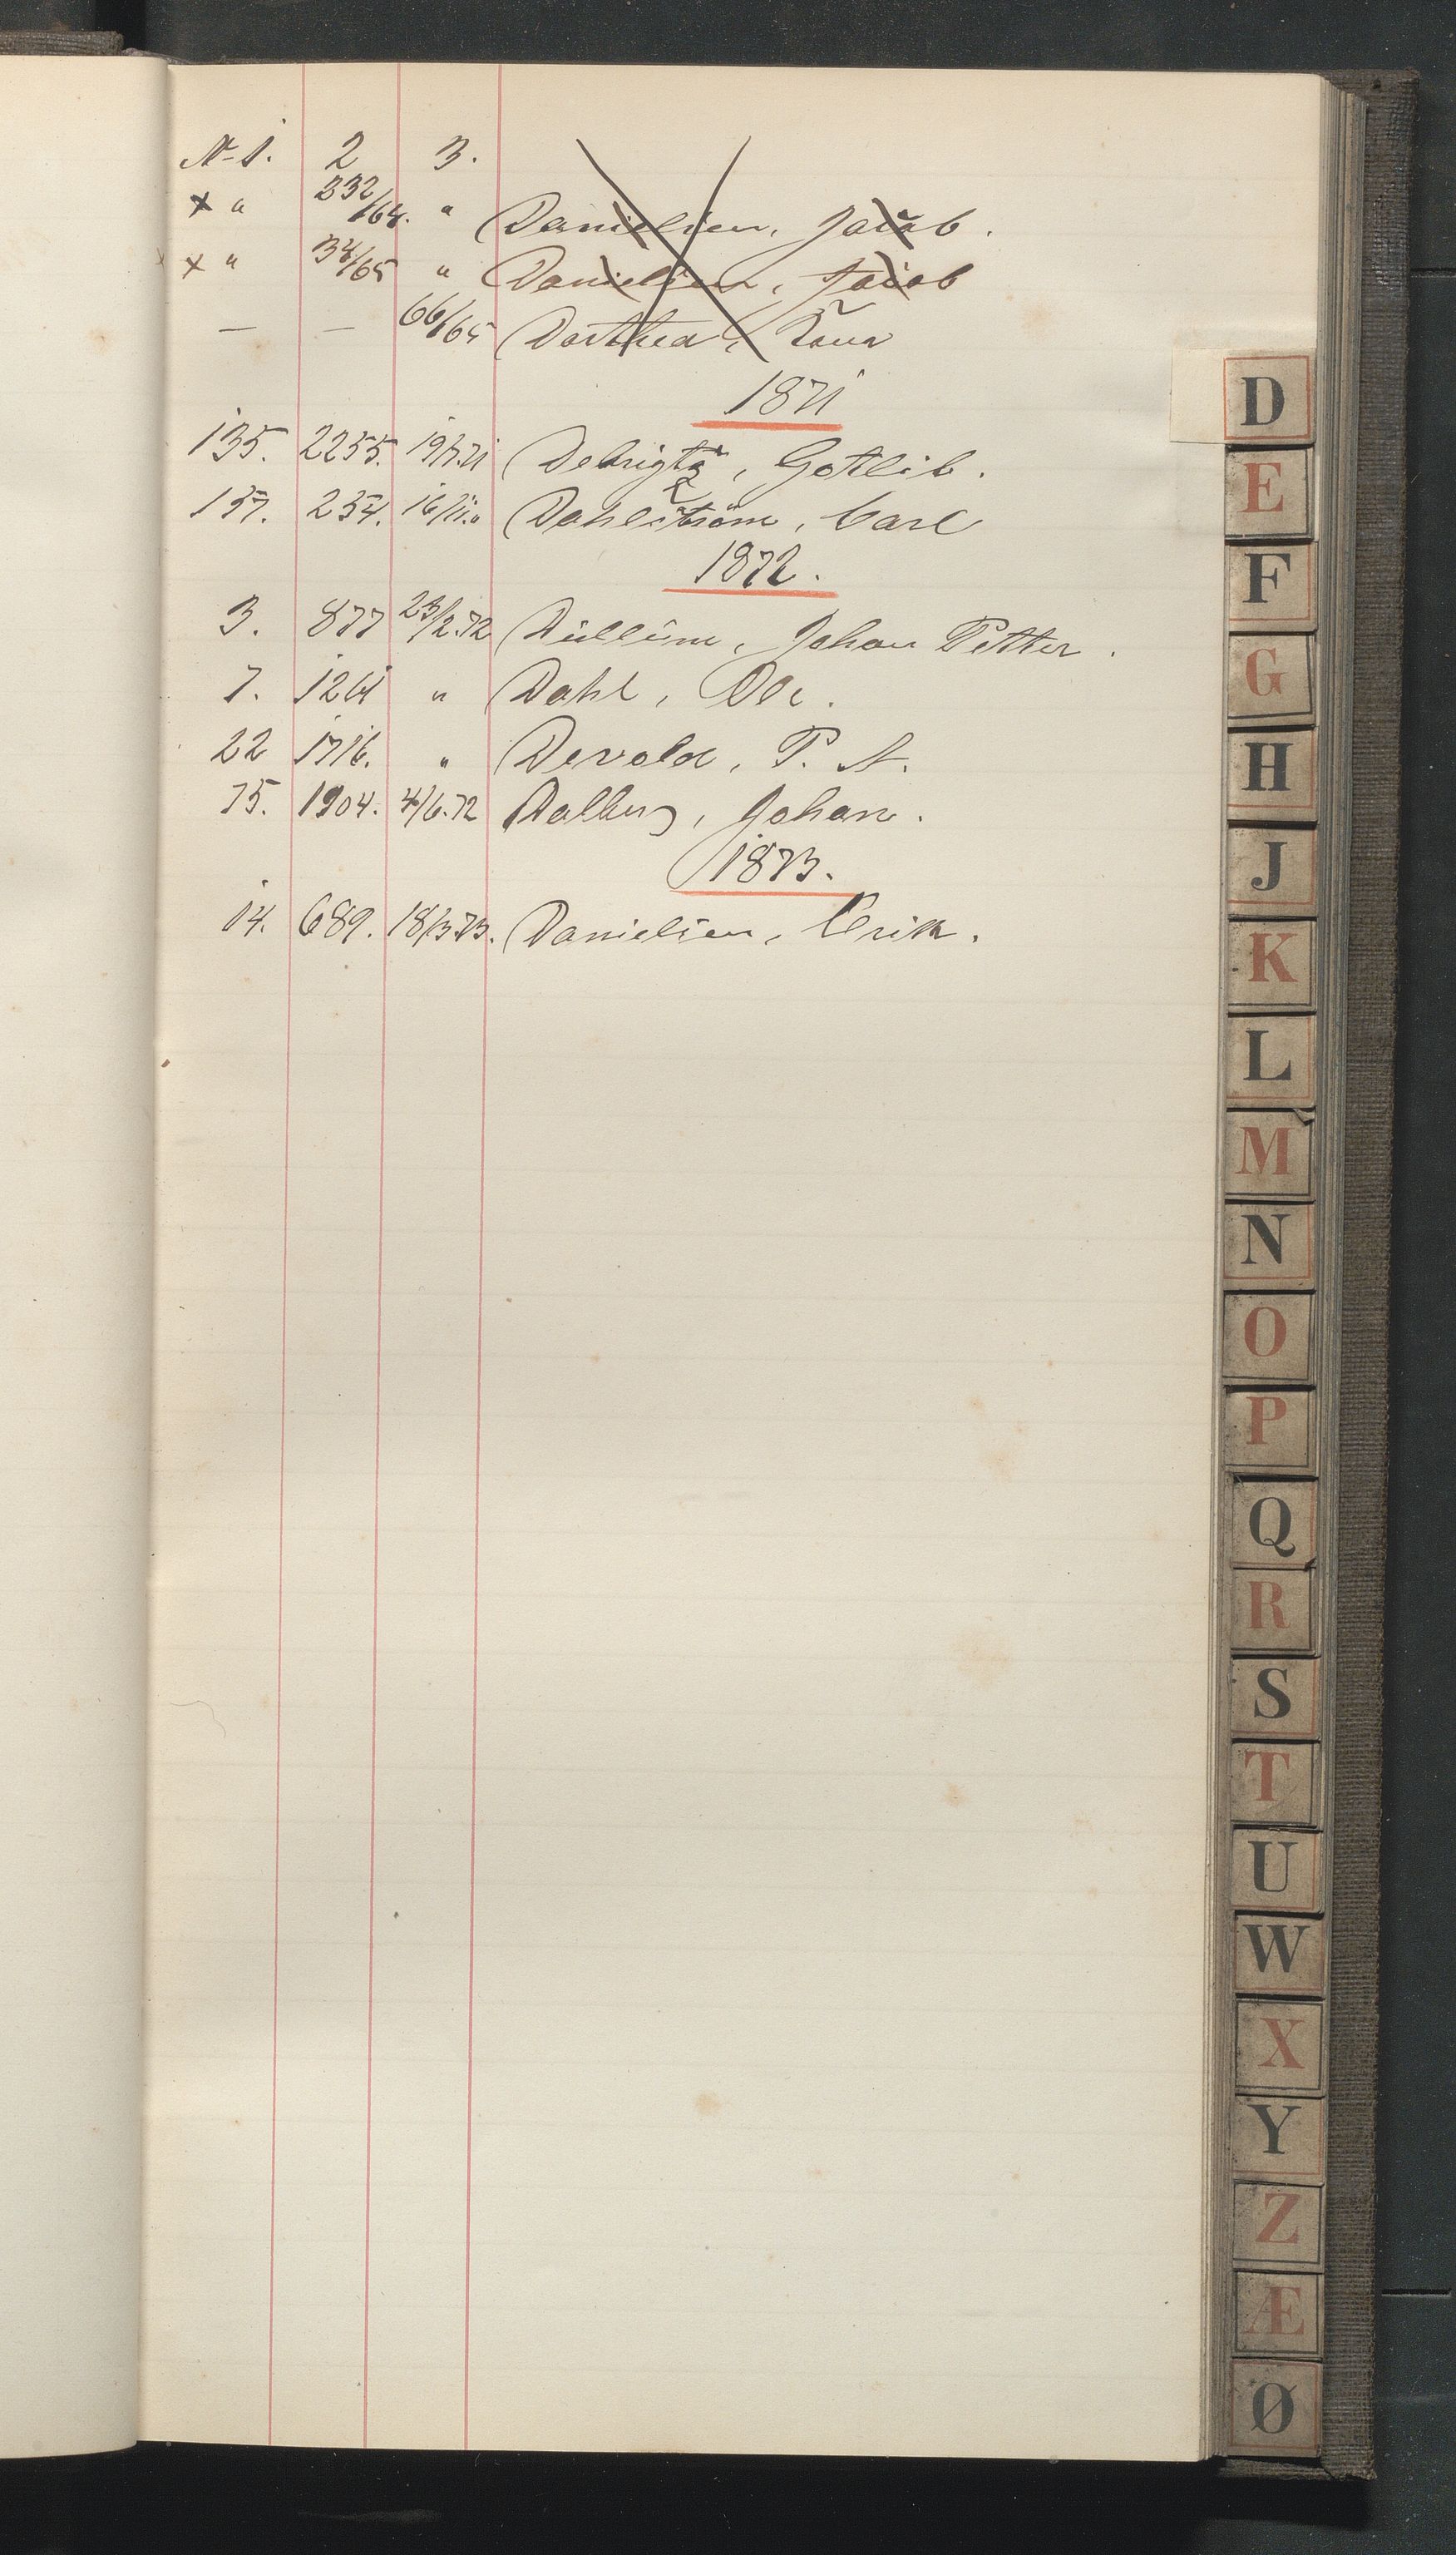 N-1. 2 3.
x " 232/64. " Danielsen, Jacob.
x " 34/65 " Danielsen, Jacob
— — 66/65 Dorthea,
1871
135. 2255. 19/7.71 Debrigtz, Gotlib.
137. 234. 16/11." Dahlström, Carl
1872.
3. 877 23/2.72 Düllüm, Johan Petter.
7. 1261 " Dahl, Ole.
22 1716. " Devold, P. A.
75. 1904. 4/6.72 Dalberg, Johan.
1873.
14. 689. 18/3.73. Danielsen, Erik.
D
E
F
G
H
J
K
L
M
N
O
P
Q
R
S
T
U
W
X
Y
Z
Æ
Ø